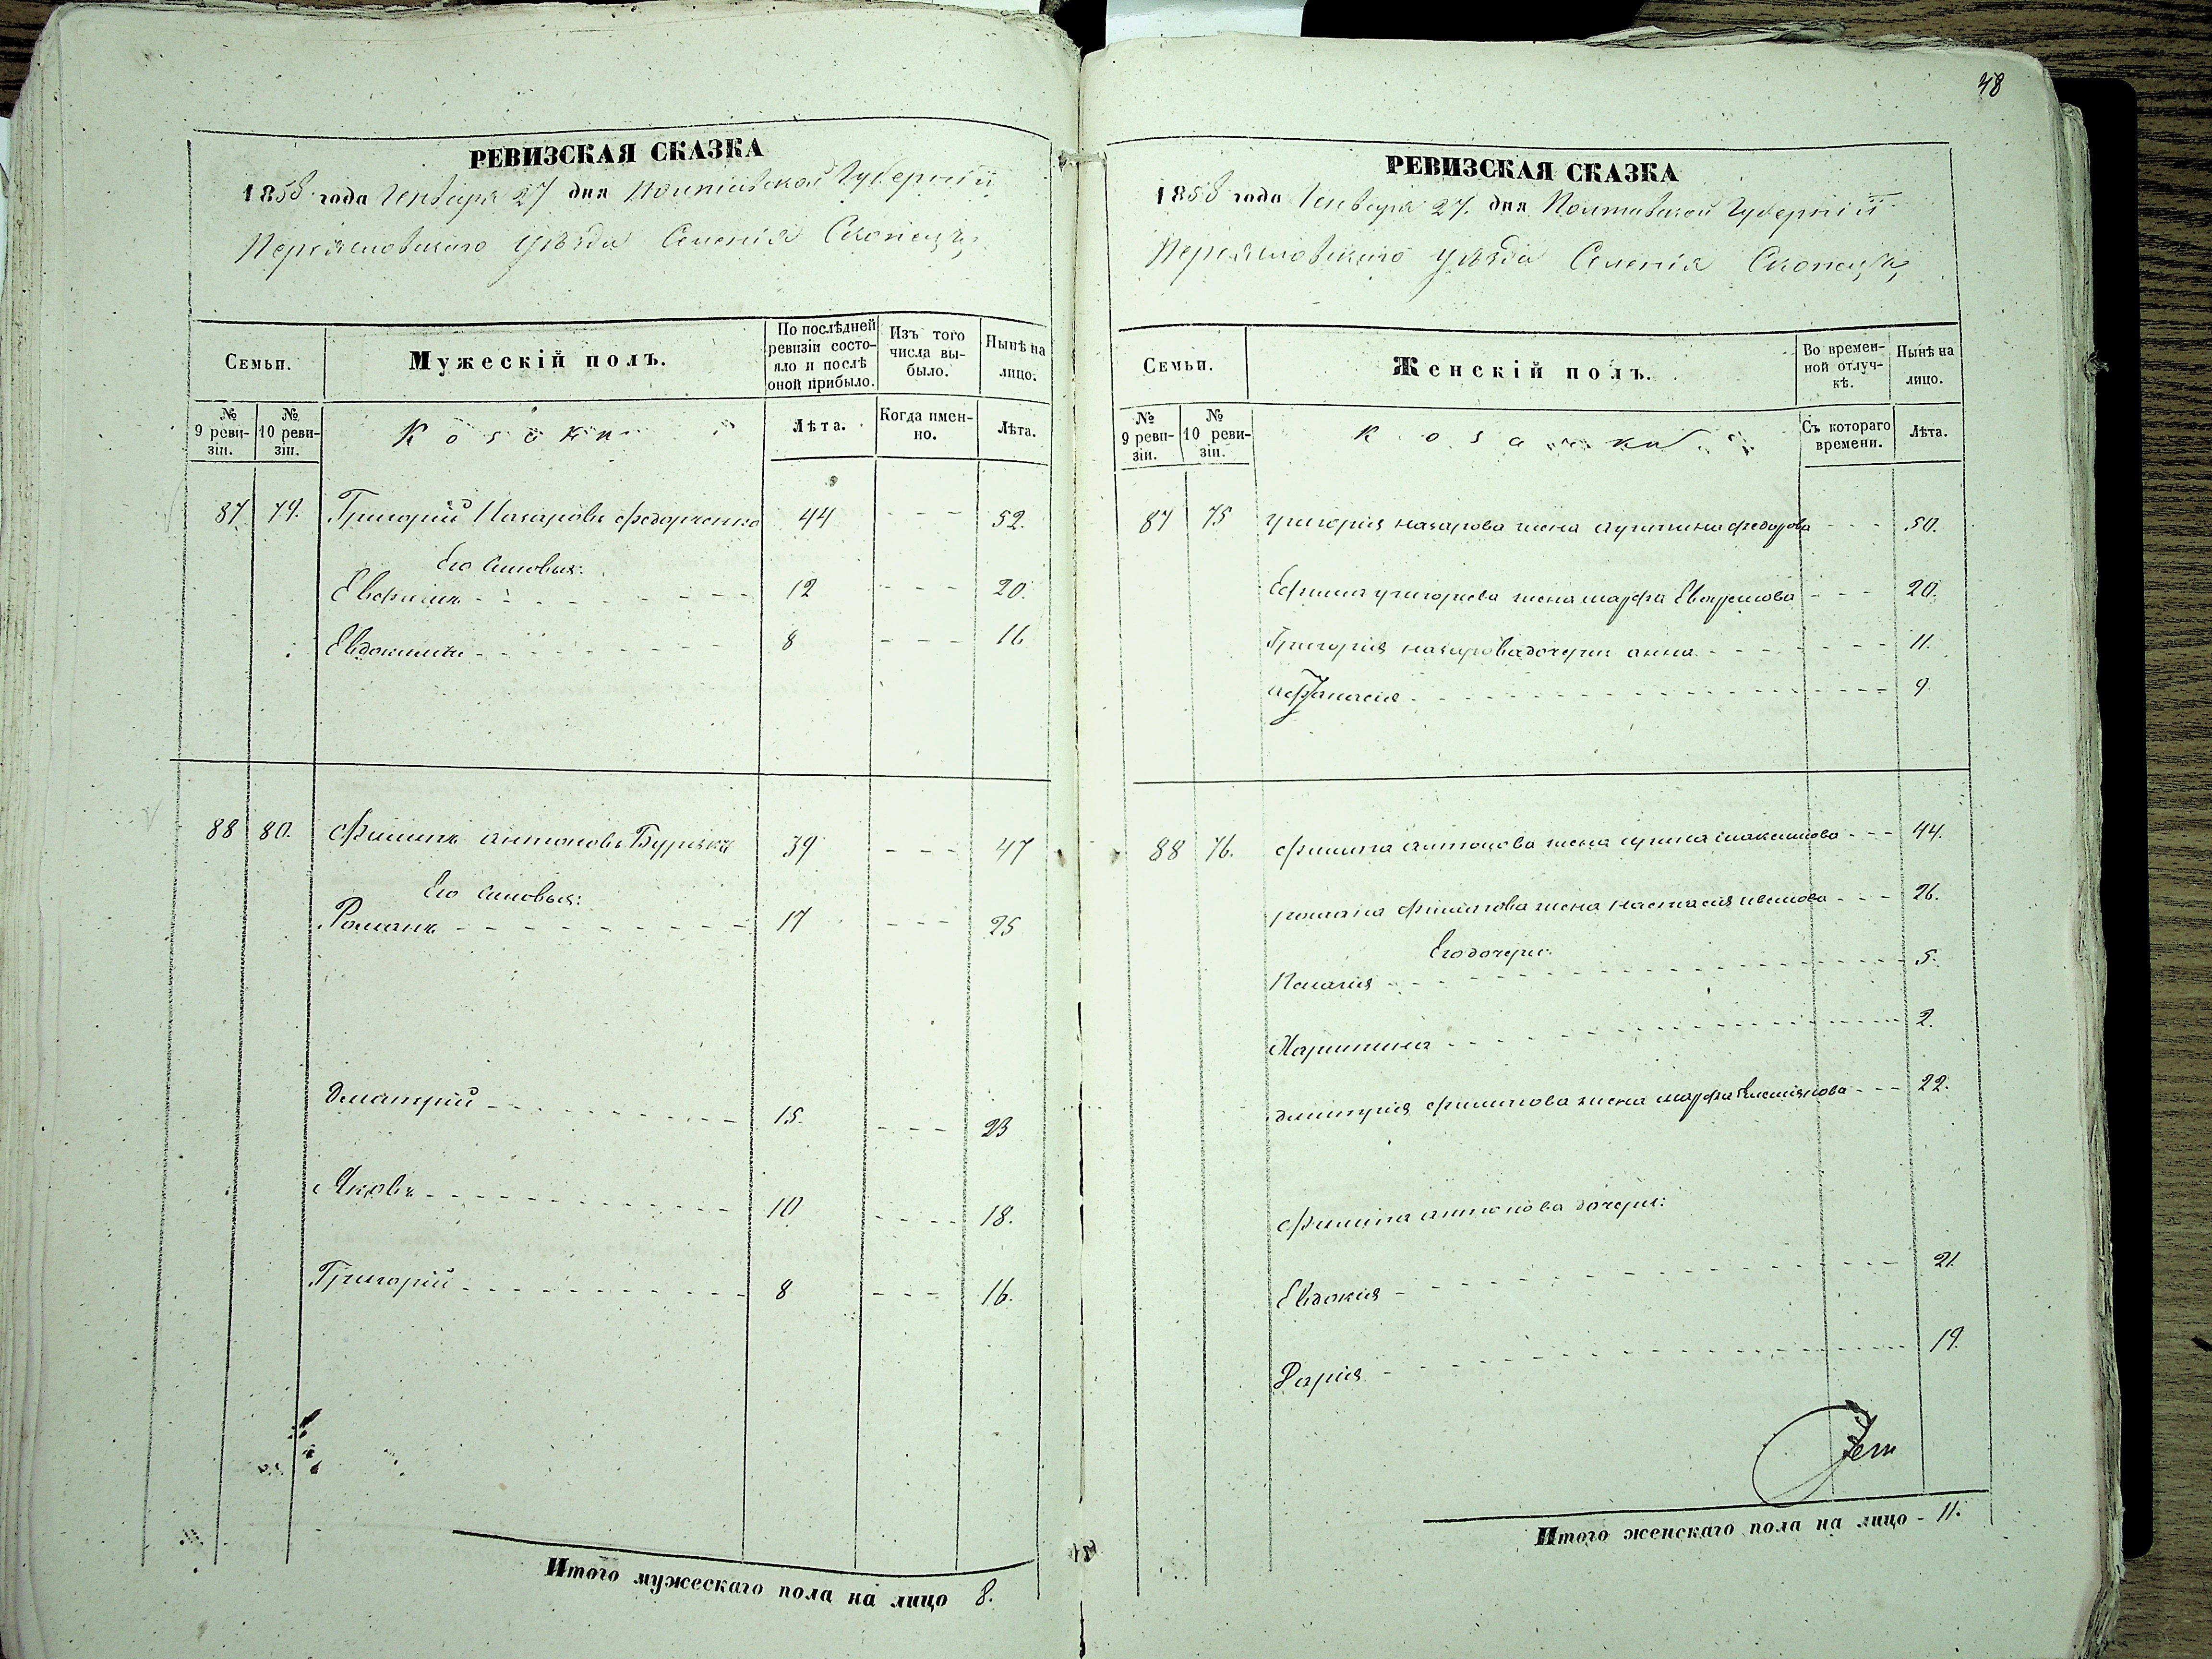 48
РЕВИЗСКАЯ СКАЗКА
1858 года Генваря 27 дня Полтавской Губерніи
Переяславскаго Уѣзда Селенія Скопецкъ
Семьи.
Мужескій полъ.
По послѣдней ревизіи состо-
яло и послѣ оной прибыло.
Изъ того числа вы-
было.
Нынѣ на лицо.
№ 9 реви-
зіи.
№ 10 реви-
зіи.
Козаки
Лѣта.
Когда имен-
но.
Лѣта.
87 79. Григорій Назаровъ Федорченко 44 - - - 52.
Его сыновья:
Евфимъ - - - 12 - - - 20.
Евдокимъ - - - 8 - - - 16
88 80. Филипъ Антоновъ Бурякъ 39 - - - 47
Его сыновья:
Романъ - - - 17 - - - 25
Дмитрій - - - 15. - - - 23
Яковъ - - - 10 - - - 18.
Григорій - - - 8 - - - 16.
Итого мужескаго пола на лицо 8.
РЕВИЗСКАЯ СКАЗКА
1858 года Генваря 27. дня Полтавской Губерніи
Переяславскаго Уѣзда Селенія Скопецкъ
Семьи.
Женскій полъ.
Во времен-
ной отлуч-
кѣ.
Нынѣ на лицо.
№ 9 реви-
зіи.
№ 10 реви-
зіи.
Козачки
Съ котораго времени.
Лѣта.
87 75 Григорія Назарова жена Устина Федорова - - - 50.
Ефима Григорьева жена Марфа - - - 20.
Григорія Назарова дочери Анна - - - 11.
Афанасія - - - 9
88 76. Филипа Антонова жена Ирина Максимова - - - 44.
Романа Филипова жена Настасія Иванова - - - 26.
Его дочери:
Палагія - - - 5.
- - - 2.
Дмитрія Филипова жена Марфа - - - 22.
Филипа Антонова дочери:
Евдокія - - - 21.
Дарія - - - 19.
Итого женскаго пола на лицо - 11.